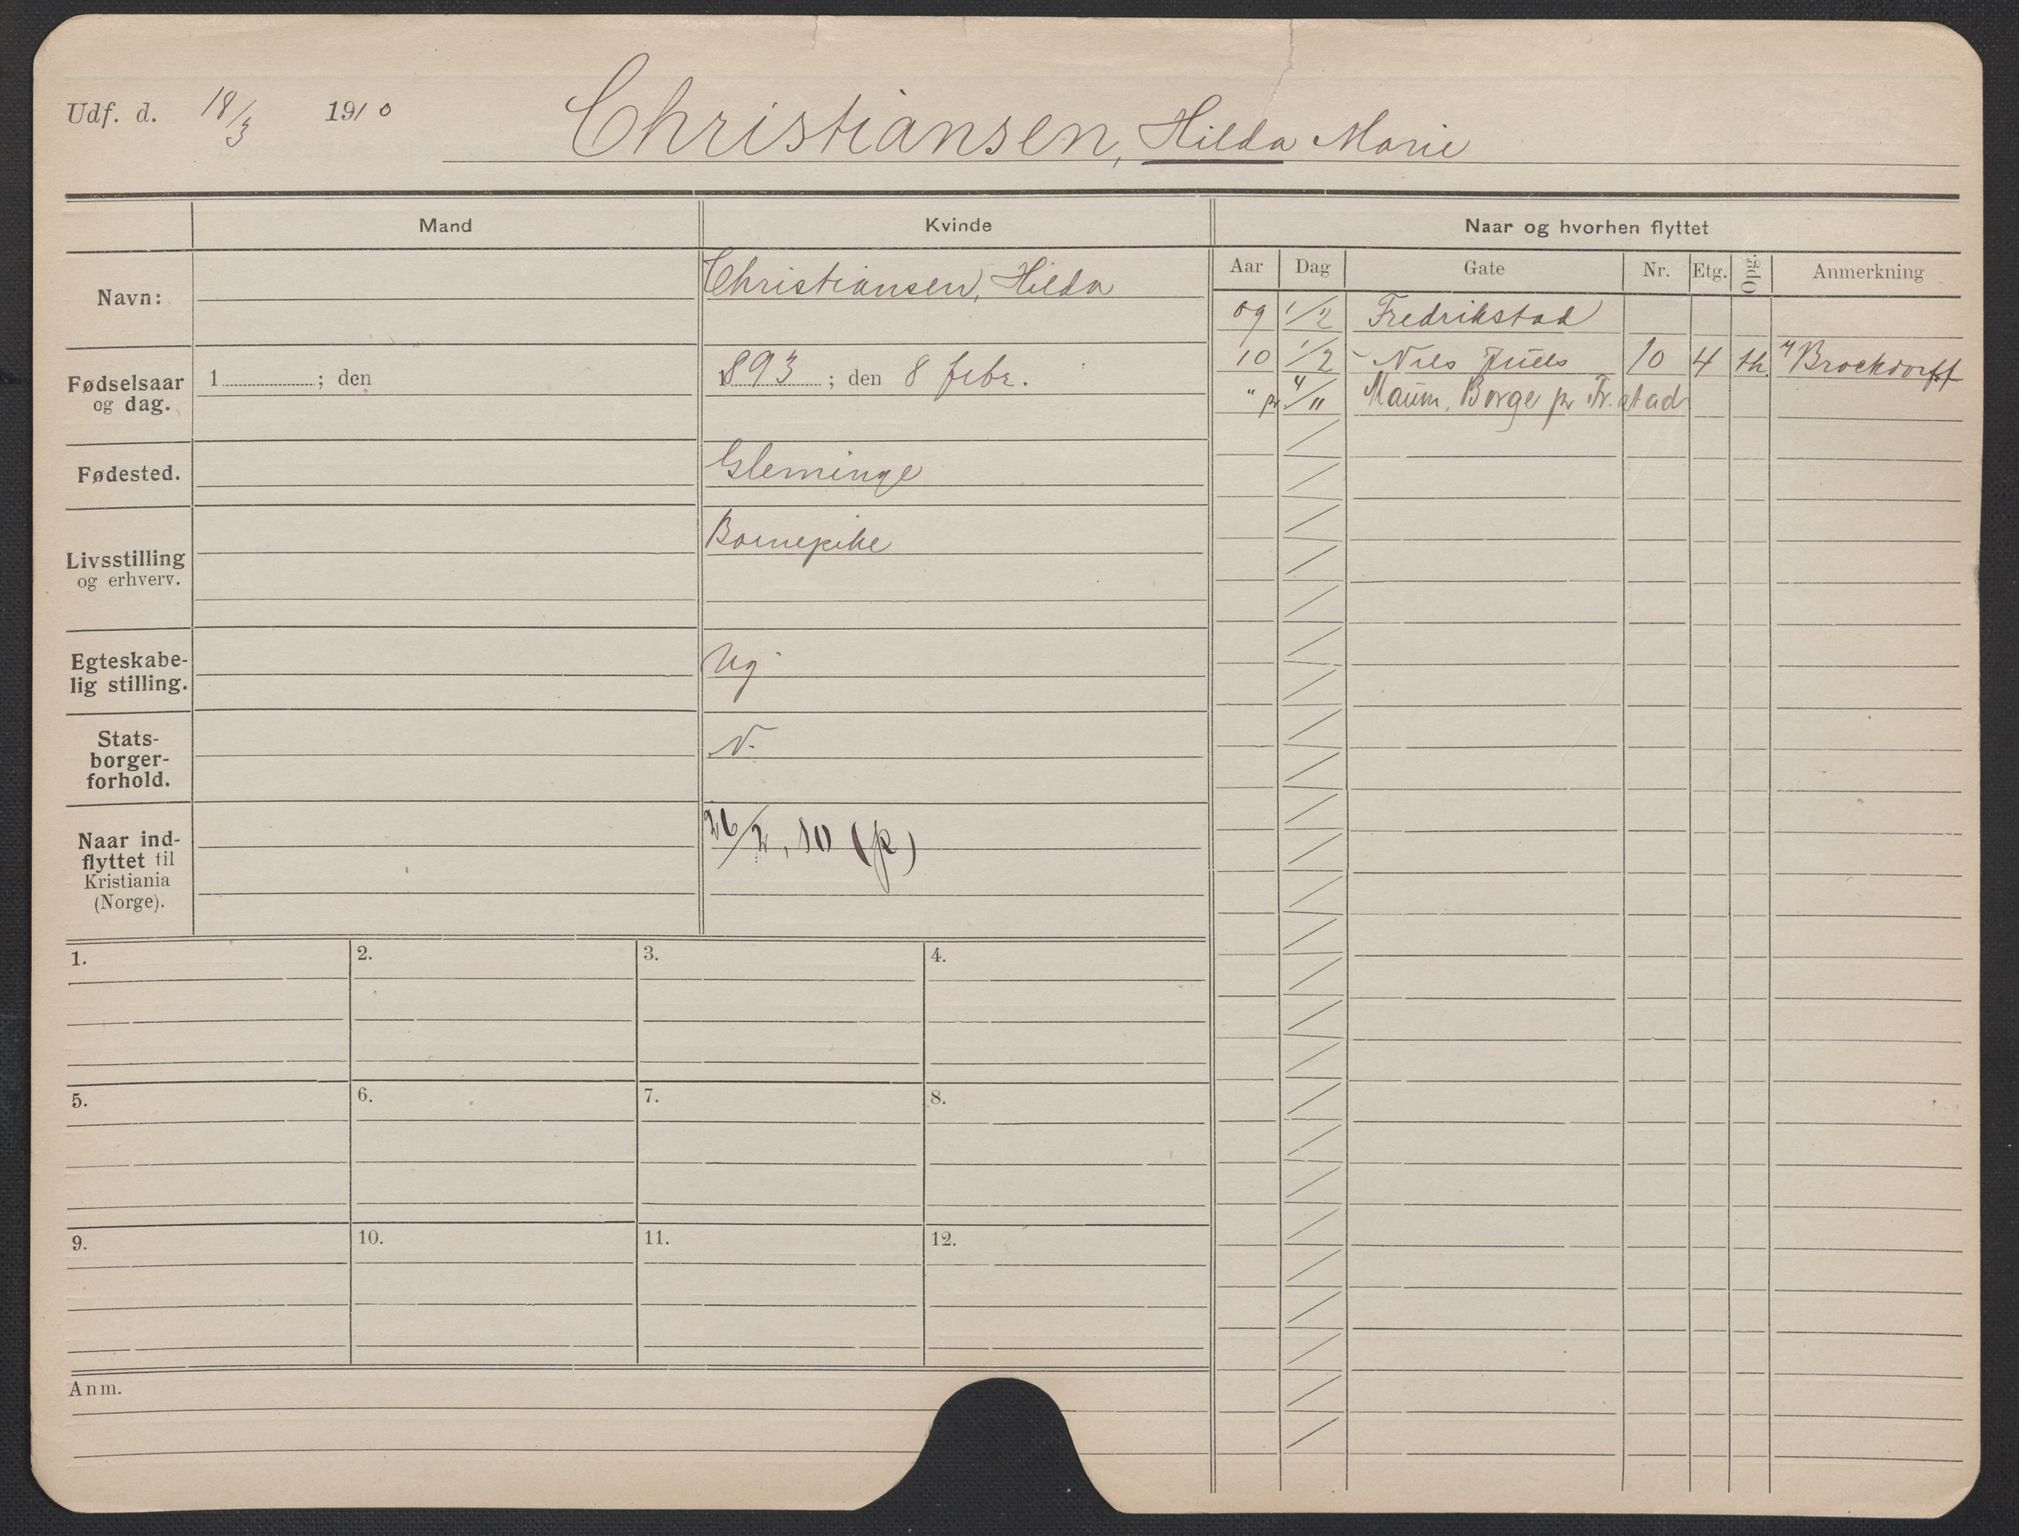 Udf. d. 18/3 1910 Christiansen, Hilda Marie
Mand Kvinde Naar og hvorhen flyttet
Aar Dag Gate Nr. Etg. Opg. Anmerkning
Navn: Christiansen, Hilda
09 1/2 Fredrikstad
10 1/2 Nils Juels 10 4 th. Brockdorff
" pr 4/11 Maum, Borge pr Fr.stad
Fødselsaar og dag. 1 ; den 1893 ; den 8 febr.
Fødested. Gleminge
Livsstilling og erhverv. Barnepike
Egteskabe-
lig stilling. Ug
Stats-
borger-
forhold. N.
Naar ind-
flyttet til
Kristiania
(Norge). 26/2, 10 (p)
1. 2. 3. 4.
5. 6. 7. 8.
9. 10. 11. 12.
Anm.